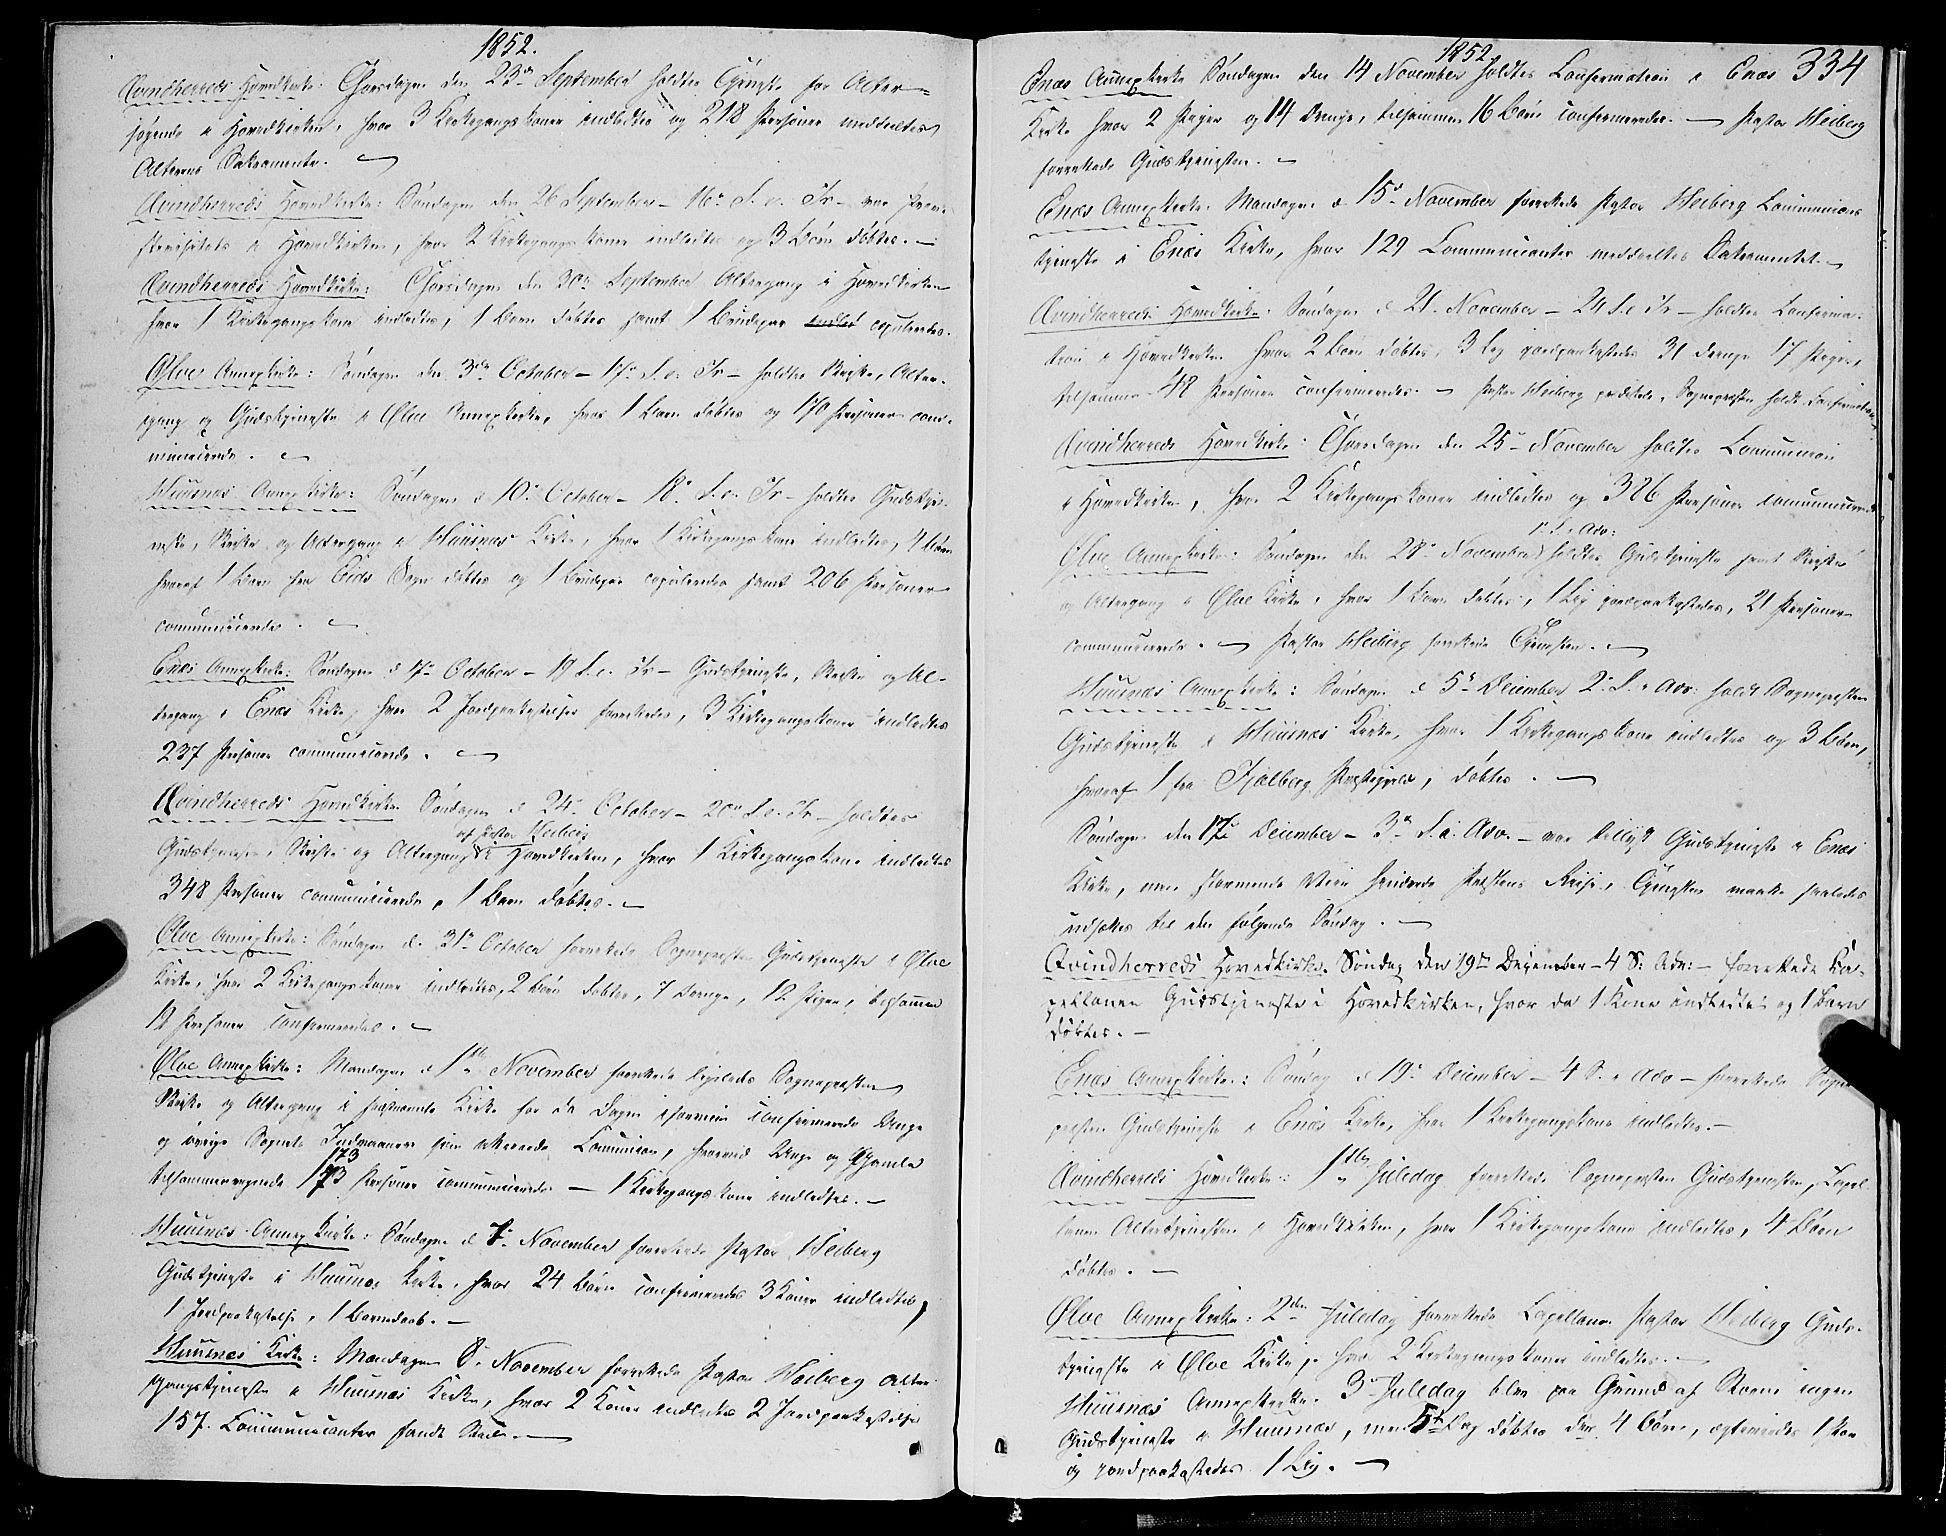 1852.
Qvindherreds Hovedkirke: Thorsdagen den 23de September holdtes Tjeneste for Alter-
søgende i Hovedkirken, hvor 3 Kirkegangskoner indledtes og 218 Personer meddeeltes
Alterens Sakramente.
Qvindherreds Hovedkirke: Søndagen den 26 September – 16de S. e. Tr. – var
i Hovedkirken, hvor 2 Kirkegangskoner indledtes og 3 Børn døbtes. –
Qvindherreds Hovedkirke: Thorsdagen den 30te September Altergang i Hovedkirken
hvor 1 Kirkegangskone indledtes, 1 Barn døbtes samt 1 Brudepar copuleredes.
Ølve Annexkirke: Søndagen den 3die October – 17de S. e. Tr – holdtes Skrifte, Alter-
gang og Gudstjeneste i Ølve Annexkirke, hvor 1 Barn døbtes og 170 Personer com-
municerede.
Huusnæs Annexkirke: Søndagen d 10de October – 18de S. e. Tr – holdtes Gudstje-
neste, Skrifte og Altergang i Huusnæs Kirke, hvor 1 Kirkegangskone indledtes, Børn
hvoraf 1 Barn fra Eids Sogn døbtes og 1 Brudepar copuleredes samt 206 Personer
communicerede.
Enæs Annexkirke: Søndagen d 17de October – 19 S. e. Tr – Gudstjeneste, Skrifte og Al-
tergang i Enæs Kirke, hvor 2 Jordpaakastelser forrettedes, 3 Kirkegangskoner indledtes
237 Personer communicerede.
Qvindherreds Hovedkirke Søndagen d 24de October – 20de S. e. Tr – holdtes
af Pastor Heiberg
Gudstjeneste, Skrifte og Altergang i Hovedkirken, hvor 1 Kirkegangskone indledtes
348 Personer communicerede, 1 Barn døbtes. –
Ølve Annexkirke: Søndagen d. 31te October forrettede Sognepræsten Gudstjeneste i Ølve
Kirke, hvor 2 Kirkegangskoner indledtes, 2 Børn døbtes, 7 Drenge, 12 Piger, tilsammen
19 Personer confirmeredes. –
Ølve Annexkirke: Mandagen d 1ste November forrettede ligeledes Sognepræsten
Skrifte og Altergang i samme Kirke for de Dagen iforveien confirmerede Unge
og øvrige Sognets Indvaanere som Communion, hvorved Unge og Gamle
173
tilsammenregnede 173 Personer communicerede – 1 Kirkegangskone indledtes. –
Huusnæs Annexkirke: Søndagen d 7de November forrettede Pastor Heiberg
Gudstjeneste i Huusnæs Kirke, hvor 24 Børn confirmeredes 3 Koner indledtes,
1 Jordpaakastelse, 1 Barnedaab. –
Huusnæs Kirke: Mandagen 8de November forrettede Pastor Heiberg Alter-
gangstjeneste i Huusnæs Kirke, hvor 2 Koner indledtes 2 Jordpaakastelser
157 Communicanter fandt Sted. –
1852
334
Enæs Annexkirke Søndagen den 14 November holdtes Confirmation i Enæs
Kirke hvor 2 Piger og 14 Drenge, tilsammen 16 Børn confirmeredes. – Pastor Heiberg
forrettede Gudstjenesten. –
Enæs Annexkirke. Mandagen d 15de November forrettede Pastor Heiberg Communions
tjeneste i Enæs Kirke, hvor 129 Communicanter meddeeltes Sakramentet. –
Qvindherreds Hovedkirke: Søndagen d 21. November – 24 S. e. Tr – holdtes Confirma-
tion i Hovedkirken hvor 2 Børn døbtes, 3 Lig jordpaakastedes 31 Drenge 17 Piger,
tilsammen 48 Personer confirmeredes. – Pastor Heiberg prædikede, Sognepræsten holdt Confirmationen
Qvindherreds Hovedkirke: Thorsdagen den 25de November holdtes Communion
i Hovedkirken, hvor 2 Kirkegangskoner indledtes og 386 Personer communicerede
1 S. i Adv:
Ølve Annexkirke: Søndagen den 28de November holdtes Gudstjeneste samt Skrifte
og Altergang i Ølve Kirke, hvor 1 Barn døbtes, 1 Lig jordpaakastedes, 21 Personer
communicerede. – Pastor Heiberg forrettede Tjenesten. –
Huusnæs Annexkirke: Søndagen d 5te December 2den S. i Adv: holdt Sognepræsten
Gudstjeneste i Huusnæs Kirke, hvor 1 Kirkegangskone indledtes og 3 Børn,
hvoraf 1 fra Fjælberg Præstegjeld, døbtes. –
Søndagen den 12te December – 3die S. i Adv. – var tillyst Gudstjeneste i Enæs
Kirke, men stormende Veir hindrede Præstens Reise, Tjenesten maatte saaledes
udsættes til den følgende Søndag. –
Qvindherreds Hovedkirke. Søndag den 19de Dezember – 4 S: Adv: – forrettede Ka-
pellanen Gudstjeneste i Hovedkirken, hvor da 1 Kone indledtes og 1 Barn
døbtes. –
Enæs Annexkirke: Søndag d 19de December – 4 S. i Adv – forrettede Sogne-
præsten Gudstjeneste i Enæs Kirke, hvor 1 Kirkegangskone indledtes. –
Qvindherreds Hovedkirke: 1ste Juledag forrettede Sognepræsten Gudstjenesten, Capel-
lanen Altertjenesten i Hovedkirken, hvor 1 Kirkegangskone indledtes, 4 Børn
døbtes. –
Ølve Annexkirke: 2den Juledag forrettede Capellanen Pastor Heiberg Guds-
tjeneste i Ølve Kirke, hvor 2 Kirkegangskoner indledtes. –
Huusnæs Annexkirke. 3die Juledag blev paa Grund af Storm ingen
Gudstjeneste i Huusnæs, men 5te Dag døbtes der 4 Børn, ægteviedes 1 Par
og jordpaakastedes 1 Lig. –